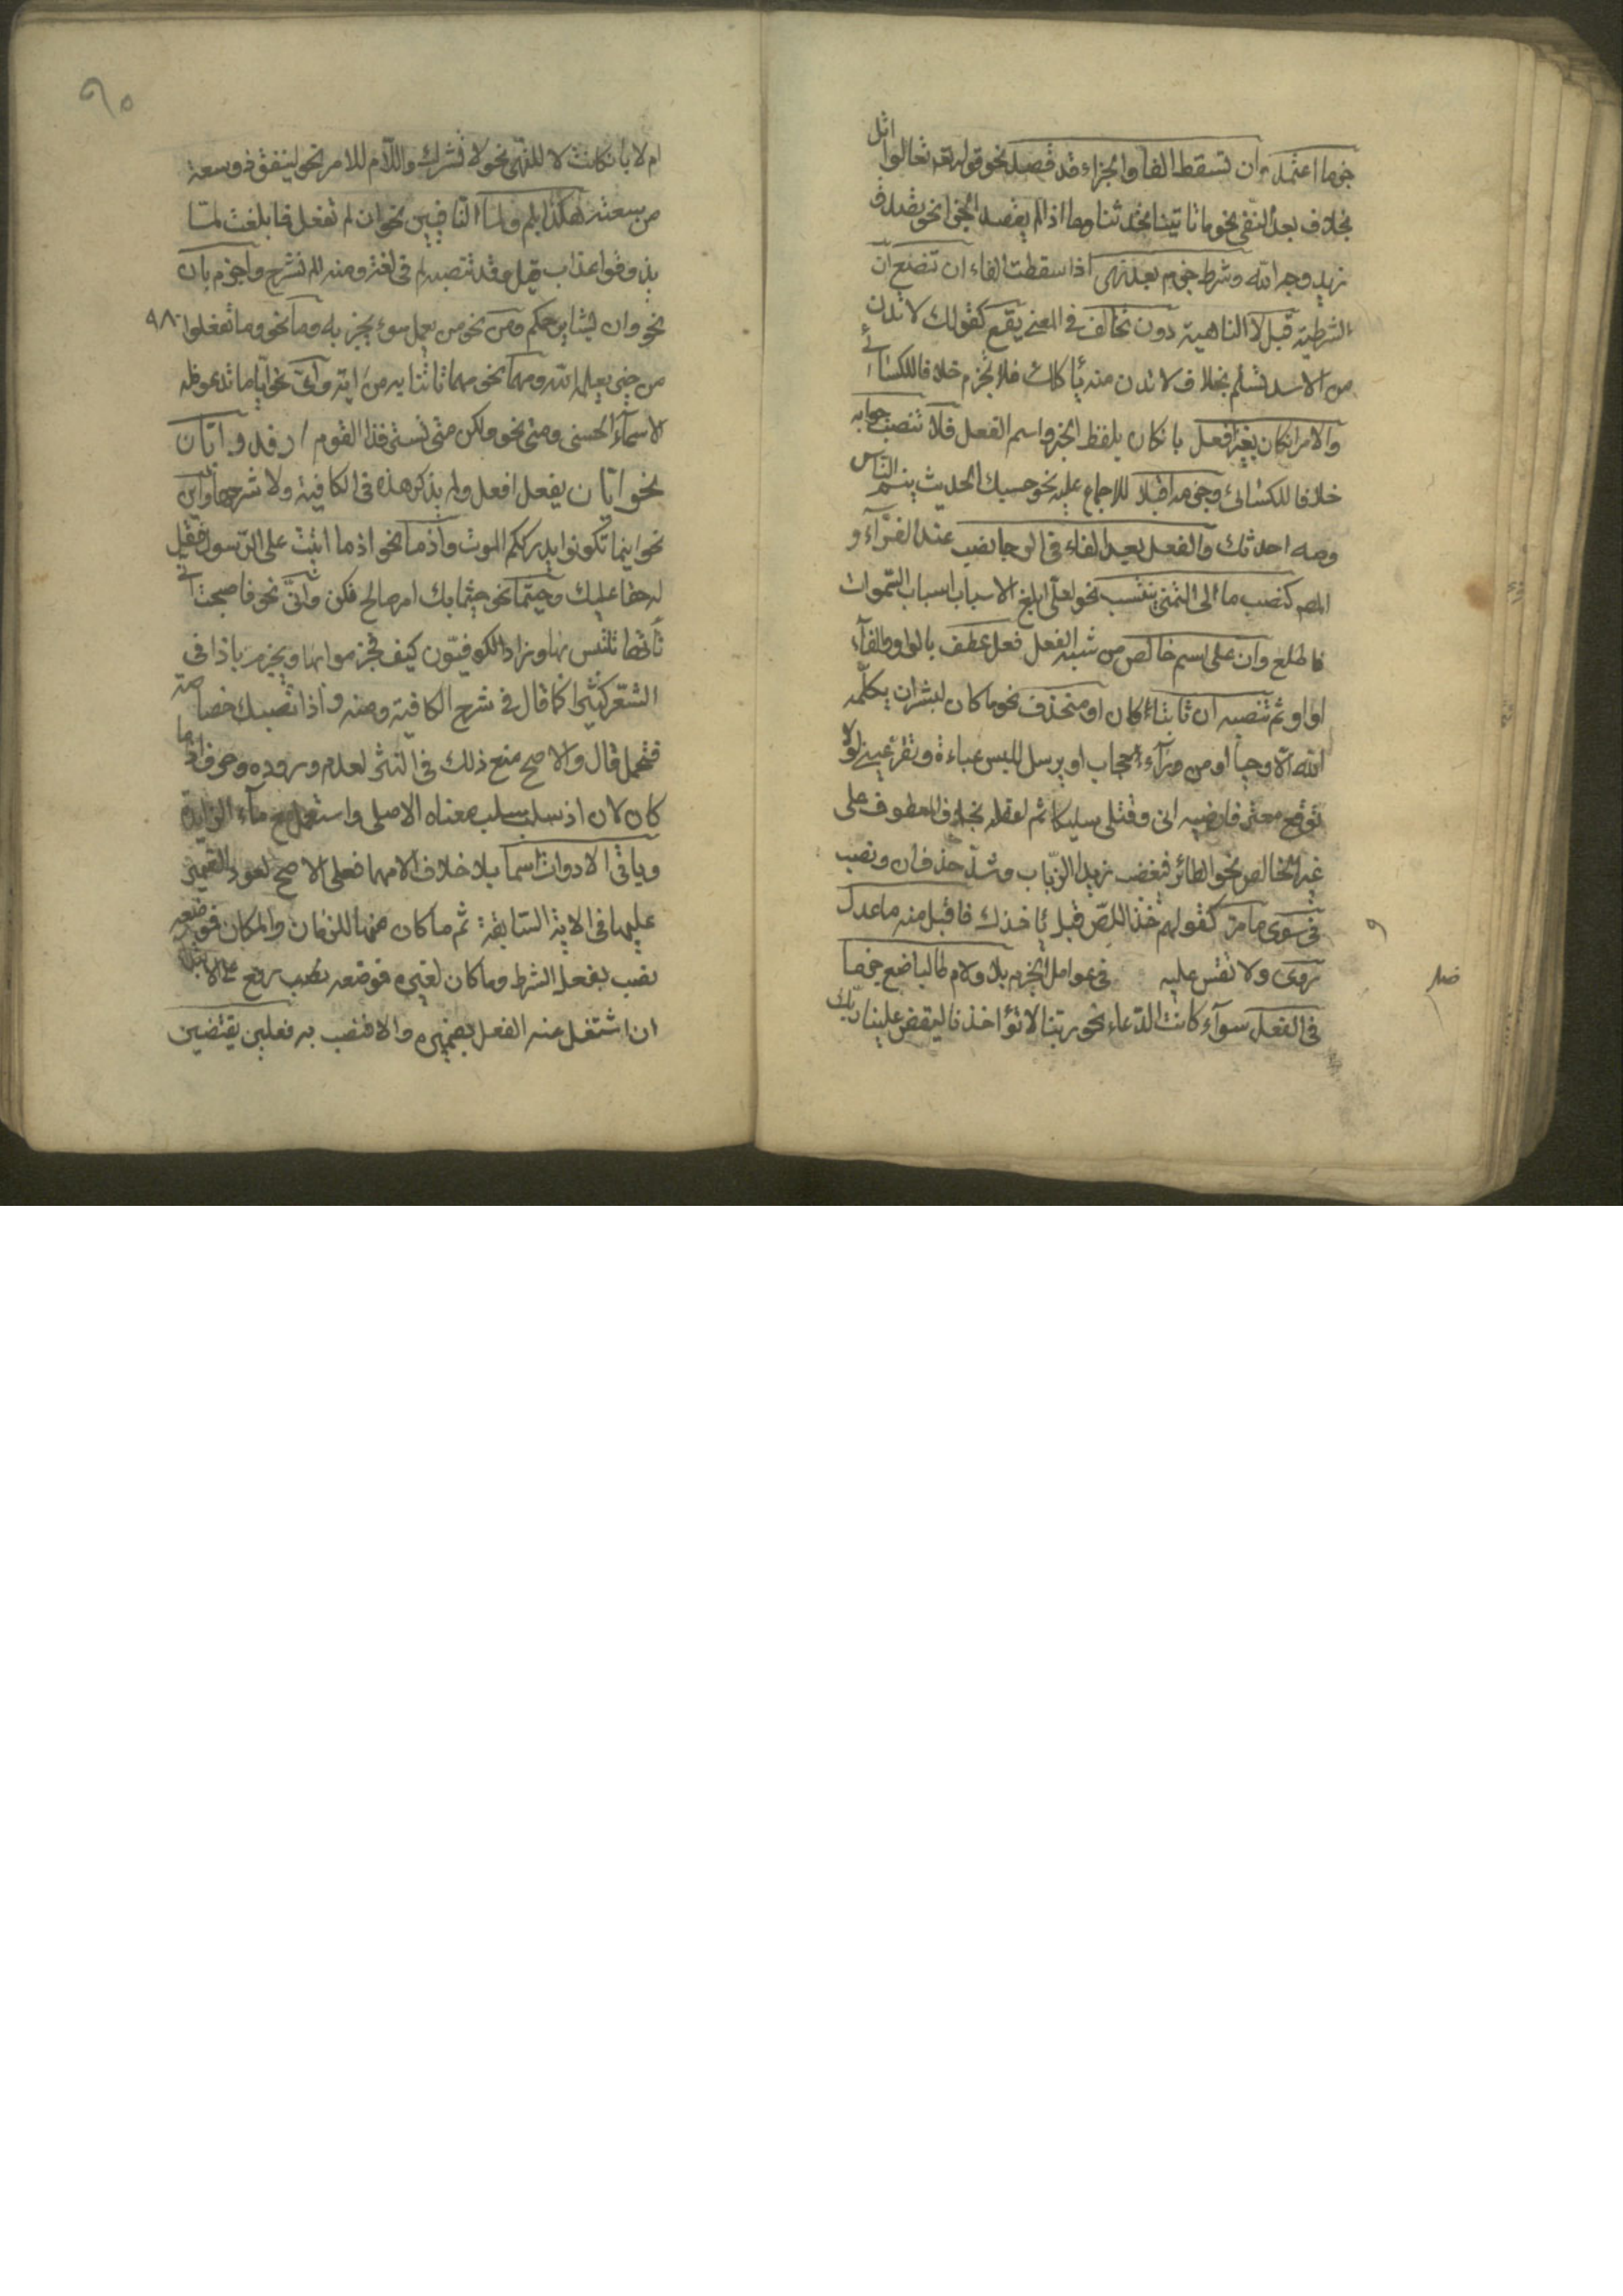 جزما اعتمد وان تسقط الفا والجزاء قد قصد نحو قوله تعه تعالوا اتل
بخلاف بعد النفى نحو ما تاتينا تحدثنا وما اذا لم يقصد الجزا نحو تصدق
تريد وجه الله وشرط جزم بعد نهى اذا سقطت الفاء ان تضع ان
الشرطية قبل لا الناهية دون تخالف في المعنى يقع كقولك لا تدن
من الاسد تسلم بخلاف لا تدن منه ياكلك فلا تجزم خلافا للكسائى
والامر ان كان بغير افعل بان كان بلفظ الخبر واسم الفعل فلا تنصب جوابه
خلافا للكسائى وجزمه اقبلا للاجماع عليه نحو حسبك الحديث ينم الناس
وصه احدثك والفعل بعد الفاء فى الرجا نصب عند الفرآء و
المص كنصب ما الى التمنى ينتسب نحو لعلى ابلغ الاسباب اسباب السموات
فاطلع وان على اسم خالص من شبه الفعل فعل عطف بالواو والفآء
او او وثم تنصبه ان ثابتا كان او منحذف نحو ما كان لبشر ان يكلمه
الله الا وحيا او من ورآء حجاب او يرسل للبس عباءة وتقر عينى لولا
توقع معتر فارضيه انى وقتلى سليكا ثم اعقله بخلاف المعطوف على
غير الخالص نحو الطائر فيغضب زيد الذباب وشذ حذف ان ونصب
فى سوى ما مر كقولهم خذ اللص قبل ياخذك فاقبل منه ما عدل
روى ولا تقس عليه فى عوامل الجزم بلا ولام طالبا ضع جزما
فى الفعل سوآء كانت الدعاء نحو ربنا لا تؤاخذنا ليقض علينا ربك
ام لا بان كانت لا للنهى نحو لا تشرك واللام للامر نحو لينفق ذو سعة
من سعته هكذا بلم ولما النافيين نحو ان لم تفعل فما بلغت لما
يذوقوا عذاب قيل وقد تنصب لم فى لغة ومنه الم نشرح واجزم بان
نحو وان يشا يرحمكم ومن نحو من يعمل سوء يجز به وما نحو وما تفعلوا ٩٨
من خير يعلمه الله ومهما نحو مهما تاتنا به من اية واى نحو ايا ما تدعو فله
الاسمآء الحسنى ومتى نحو ولكن متى يسترفد القوم ارفد وايان
نحو ايان يفعل افعل ولم يذكر هذه فى الكافية ولا شرحها واين
نحو اينما تكونوا يدرككم الموت واذما نحو اذما اتيت على الرسول فقل
له حقا عليك وحيثما نحو حيثما بك امر صالح فكن وانى نحو فاصبحت انى
تاتها تلتبس بها وزاد الكوفيون كيف فجزموا بها ويجزم باذا فى
الشعر كثيرا كما قال فى شرح الكافية ومنه واذا تصبك خصاصة
فتحمل قال والاصح منع ذلك فى النثر لعدم وروده وحرف اذما
كان لان اذ سلب معناه الاصلى واستعمل مع ماء الزايدة
وباقى الادوات اسما بلا خلاف الا مهما فعلى الاصح لعود الضمير
عليها فى الاية السابقة ثم ما كان منها للزمان والمكان فموضعه
نصب بفعل الشرط وما كان لغيره فموضعه رفع على الابتدا
ان اشتغل عنه الفعل بضميره والا فنصب به فعلين يقتضين